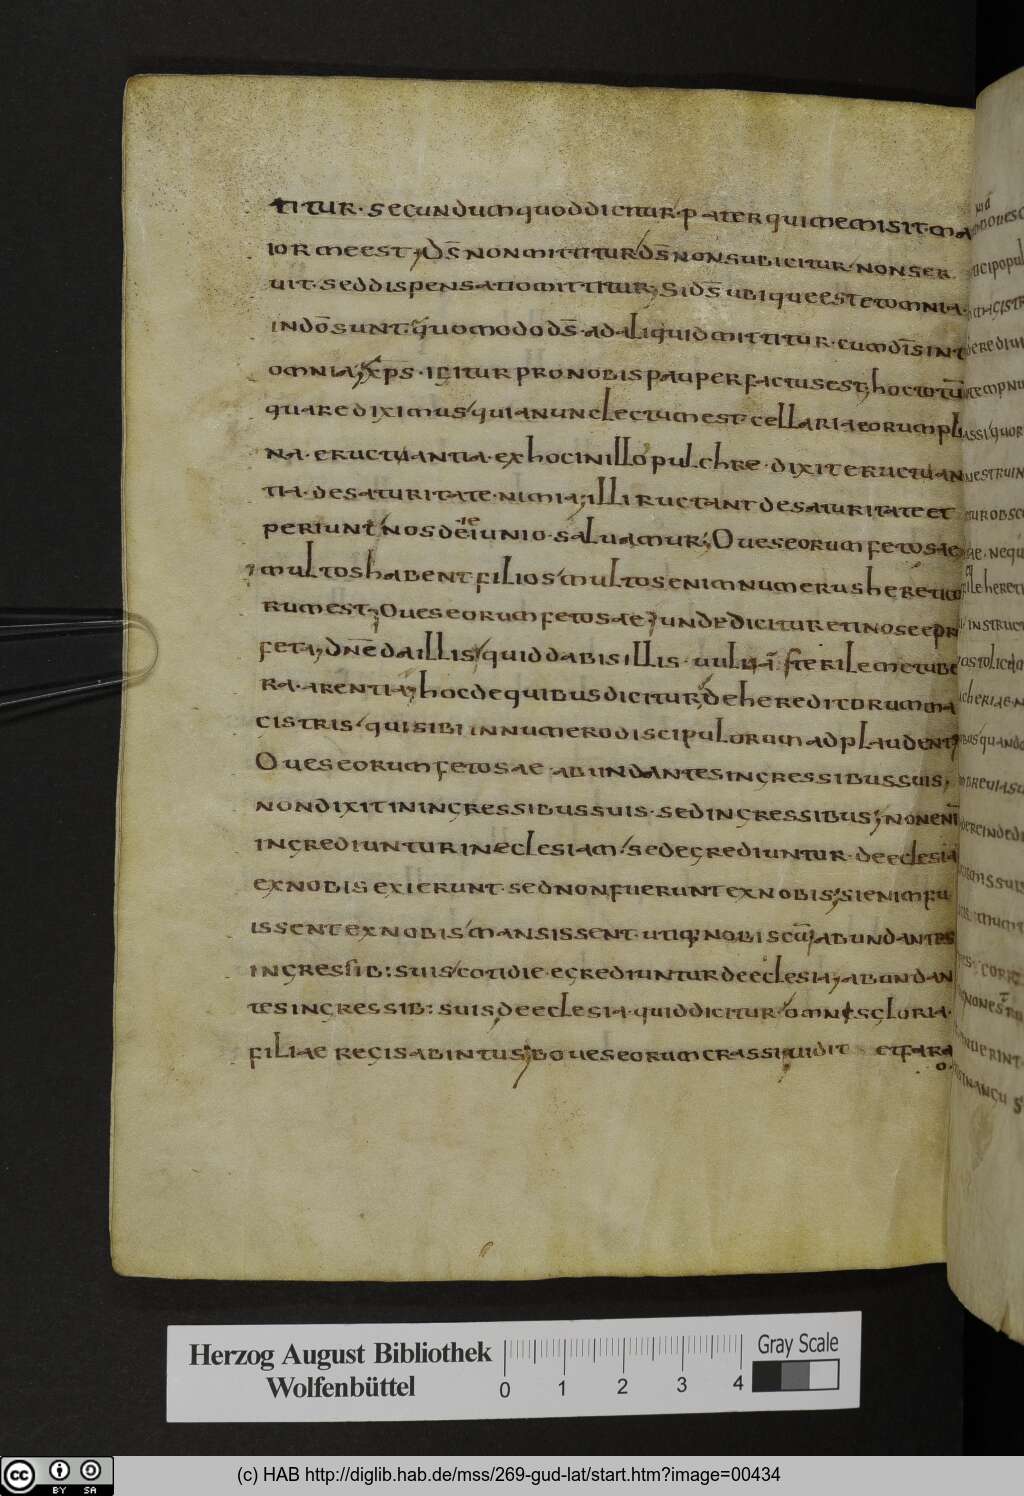 titur· secundum quod dicitur· pater qui me misit· ma
ior me est; Ds̄ non mittitur/ ds̄ non subicitur/ non ser
uit· sed dispensatio mittitur; Si ds̄ ubique est et omnia·
in dō sunt· quomodo ds̄· ad aliquid mittitur· cum dīs sint
omnia; xp̄s· igitur pro nobis pauper factus est; hoc totū
quare diximus/ quia nunc lectum est· cellaria eorum ple
na· eructuantia· ex hoc in illo pulchre· dixit eructuan
tia· de saturitate· nimia; illi ructant de saturitate et
pereunt/ nos de ieiunio· saluamur; Oues eorum fetosae
multos habent filios/ multos enim numerus hereticо
rum est; Oues eorum fetosae; unde dicitur et in osee pro
feta; dn̄e da illis/ quid dabis illis· uuluā· sterilem et ube
ra· arentia; hoc de quibus dicitur/ de hereditorum ma
gistris/ qui sibi in numero discipulorum adplaudent;
Oues eorum fetosae· abundantes in gressibus suis,
non dixit in ingressibus suis· sed in gressibus; non enī
ingrediuntur in ecclesiam/ sed egrediuntur· de ecclesia
ex nobis exierunt· sed non fuerunt ex nobis; si enim fu
issent ex nobis/ mansissent· utiq; nobiscū; abundantes
in gressib: suis/ cotidie· egrediuntur de ecclesia; abundan
tes in gressib: suis, de ecclesia· quid dicitur/ omnis gloria·
filiae regis ab intus; boues eorum crassi; uidit et fara
o·
Herzog August Bibliothek
Wolfenbüttel
0 1 2 3 4
Gray Scale
cc BY SA
(c) HAB http://diglib.hab.de/mss/269-gud-lat/start.htm?image=00434